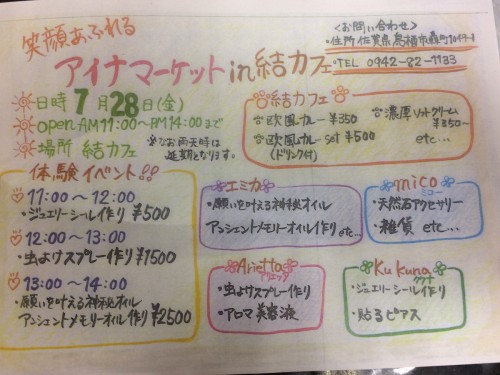 笑顔あふれる
アイナマーケットin結カフェ
<お問い合わせ>
・住所 佐賀県鳥栖市轟町1049-1
・TEL 0942-82-1133
日時 7月28日(金)
open AM11:00~PM14:00まで
場所 結カフェ
※なお雨天時は
延期となります。
結カフェ
欧風カレー ¥350
欧風カレーset ¥500
(ドリンク付)
濃厚ソフトクリーム
¥350~
etc...
体験イベント!!
11:00~12:00
・ジュエリーシール作り ¥500
12:00~13:00
・虫よけスプレー作り ¥1500
13:00~14:00
・願いを叶える神秘オイル
アンシェントメモリーオイル作り ¥2500
エミカ
・願いを叶える神秘オイル
アンシェントメモリーオイル作り etc...
mico
ミコー
・天然石アクセサリー
・雑貨 etc...
Arietta
アリエッタ
・虫よけスプレー作り
・アロマ美容液
Ku kuna
ククナ
・ジュエリーシール作り
・貼るピアス